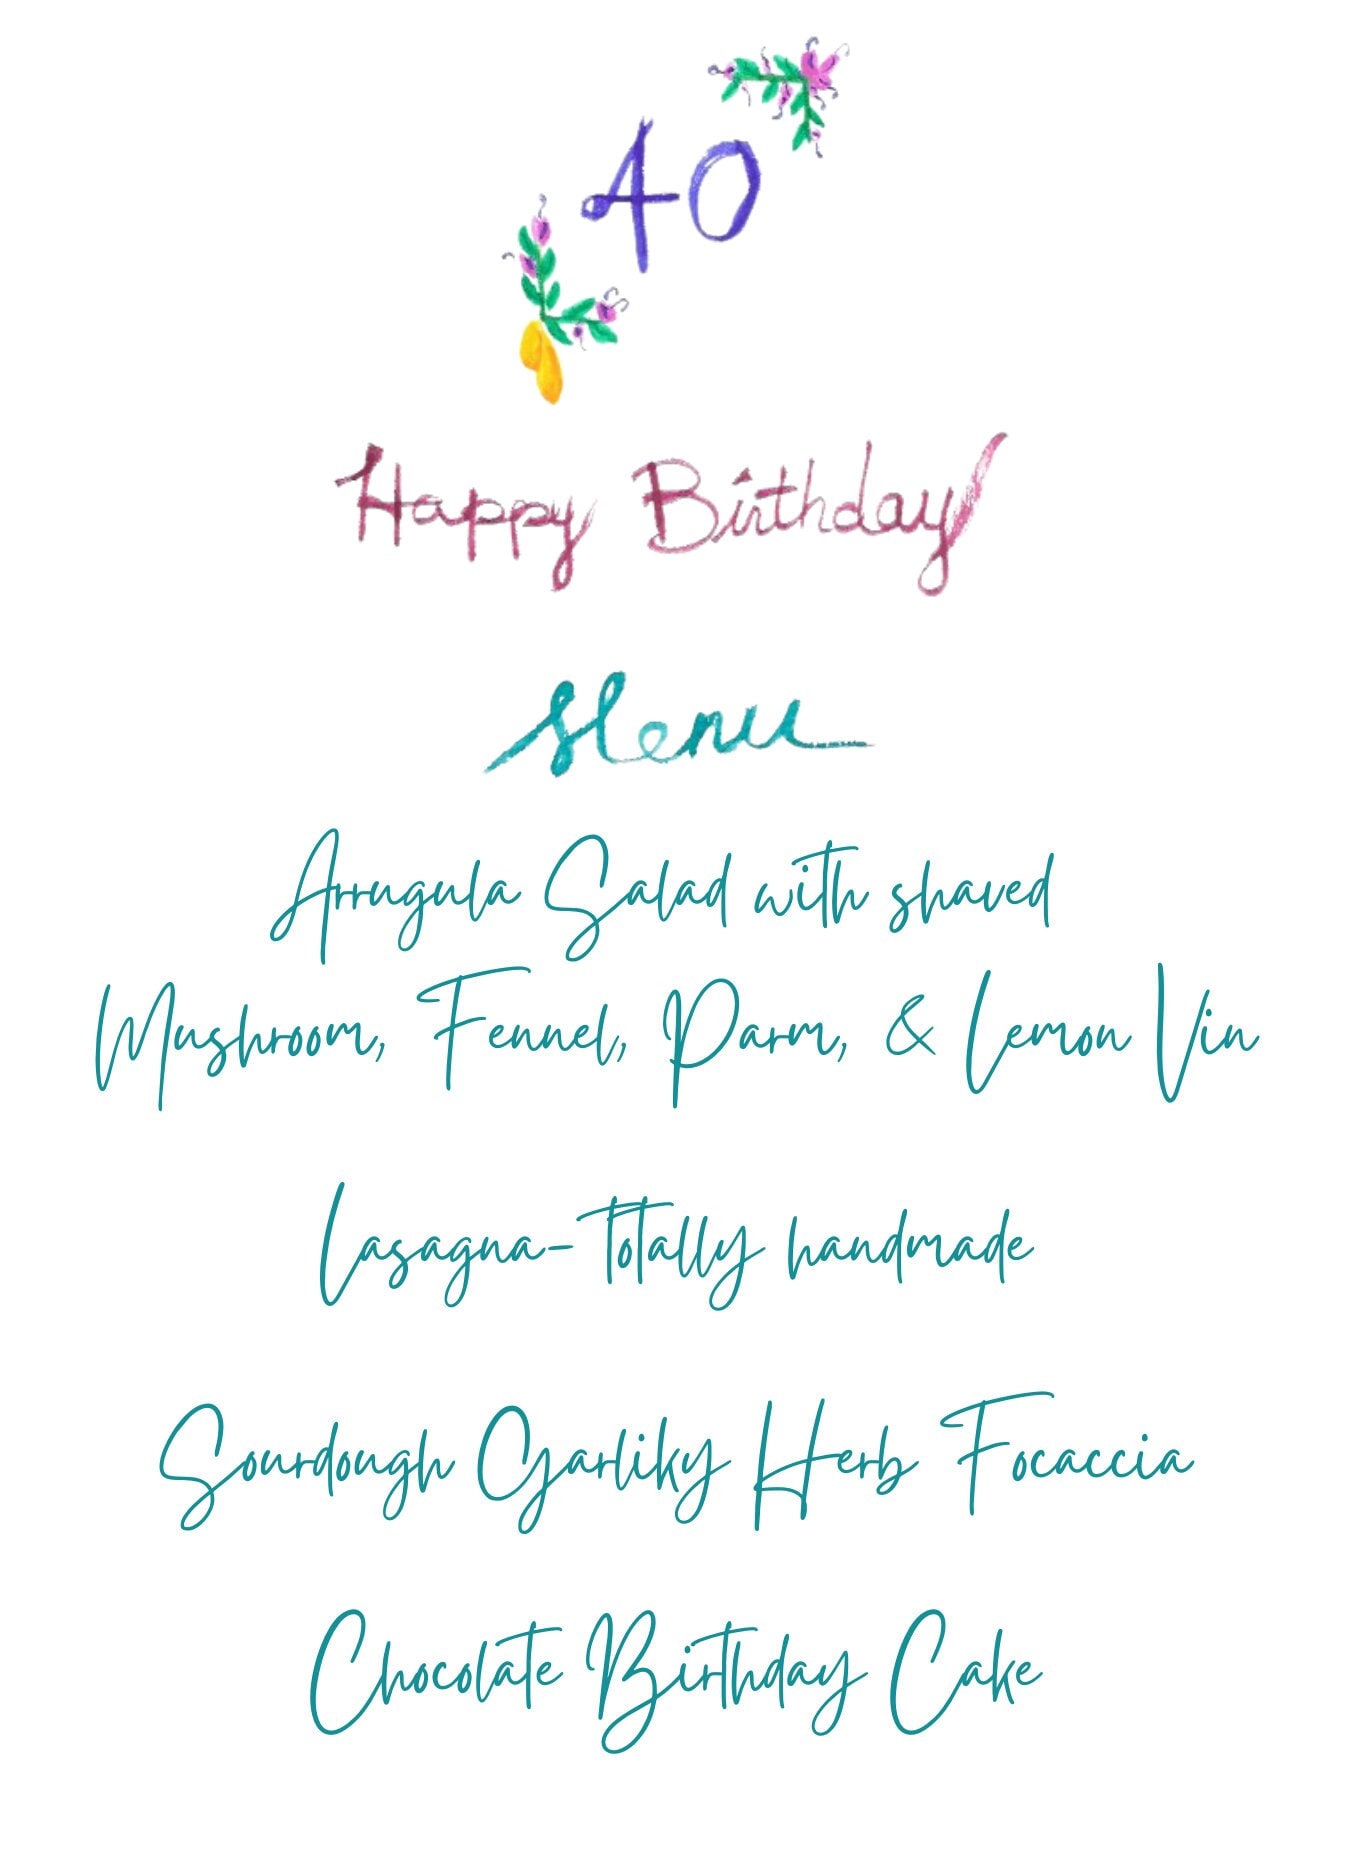 40
Happy Birthday
Menu
Arrugula Salad with shaved
Mushroom, Fennel, Parm, & Lemon Vin
Lasagna-totally handmade
Sourdough Garliky Herb Focaccia
Chocolate Birthday Cake